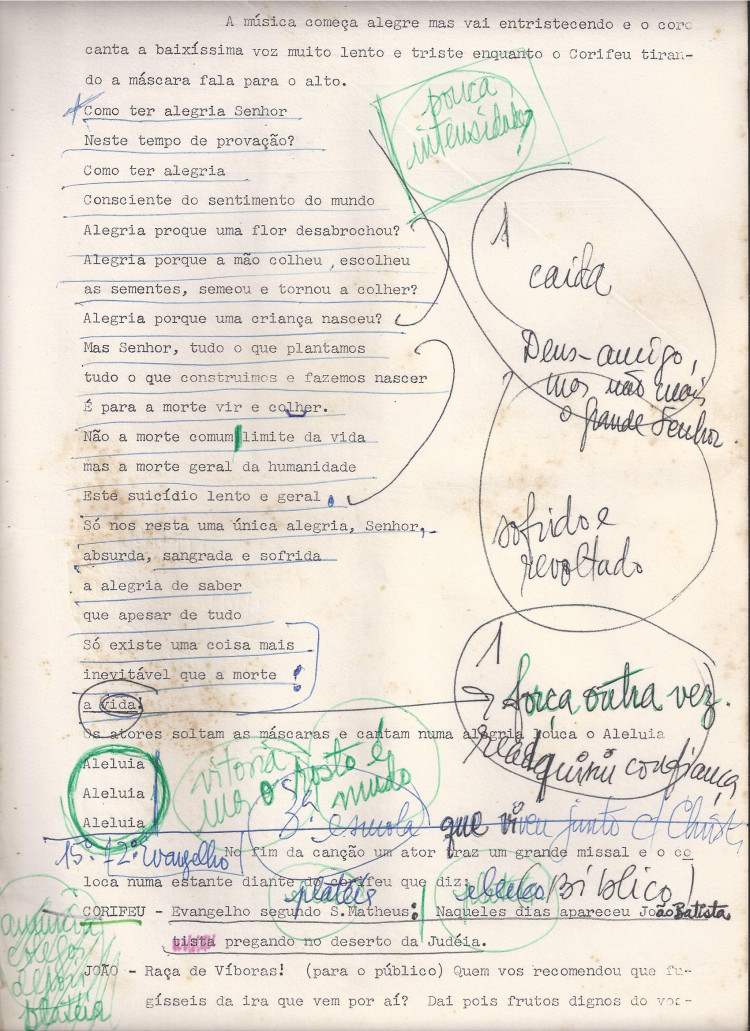 A música começa alegre mas vai entristecendo e o coro
canta a baixíssima voz muito lento e triste enquanto o Corifeu tiran-
do a máscara fala para o alto.
pouca
intensidade
Como ter alegria Senhor
Neste tempo de provação?
Como ter alegria
Consciente do sentimento do mundo
1
Alegria proque uma flor desabrochou?
Alegria porque a mão colheu, escolheu
caida
as sementes, semeou e tornou a colher?
Alegria porque uma criança nasceu?
Mas Senhor, tudo o que plantamos
Deus-amigo,
tudo o que construimos e fazemos nascer
mas não mais
É para a morte vir e colher.
o grande Senhor.
Não a morte comum limite da vida
mas a morte geral da humanidade
Este suicídio lento e geral.
Só nos resta uma única alegria, Senhor,
sofrido e
absurda, sangrada e sofrida
revoltado
a alegria de saber
que apesar de tudo
Só existe uma coisa mais
1
inevitável que a morte!
a vida.
força outra vez.
Os atores soltam as máscaras e cantam numa alegria louca o Aleluia
readquiriu confiança
Aleluia
vitória
mas o rosto é
mudo
Aleluia
Aleluia
3ª escola que viveu junto c/ Christ
15º. 12º. Evangelho
No fim da canção um ator traz um grande missal e o co
loca numa estante diante do corifeu que diz:
Bíblico)
CORIFEU - Evangelho segundo S.Matheus: Naqueles dias apareceu João Batista
tista pregando no deserto da Judéia.
colegas
depois
platéia
JOÃO - Raça de Víboras! (para o público) Quem vos recomendou que fu-
gísseis da ira que vem por aí? Dai pois frutos dignos do vos-